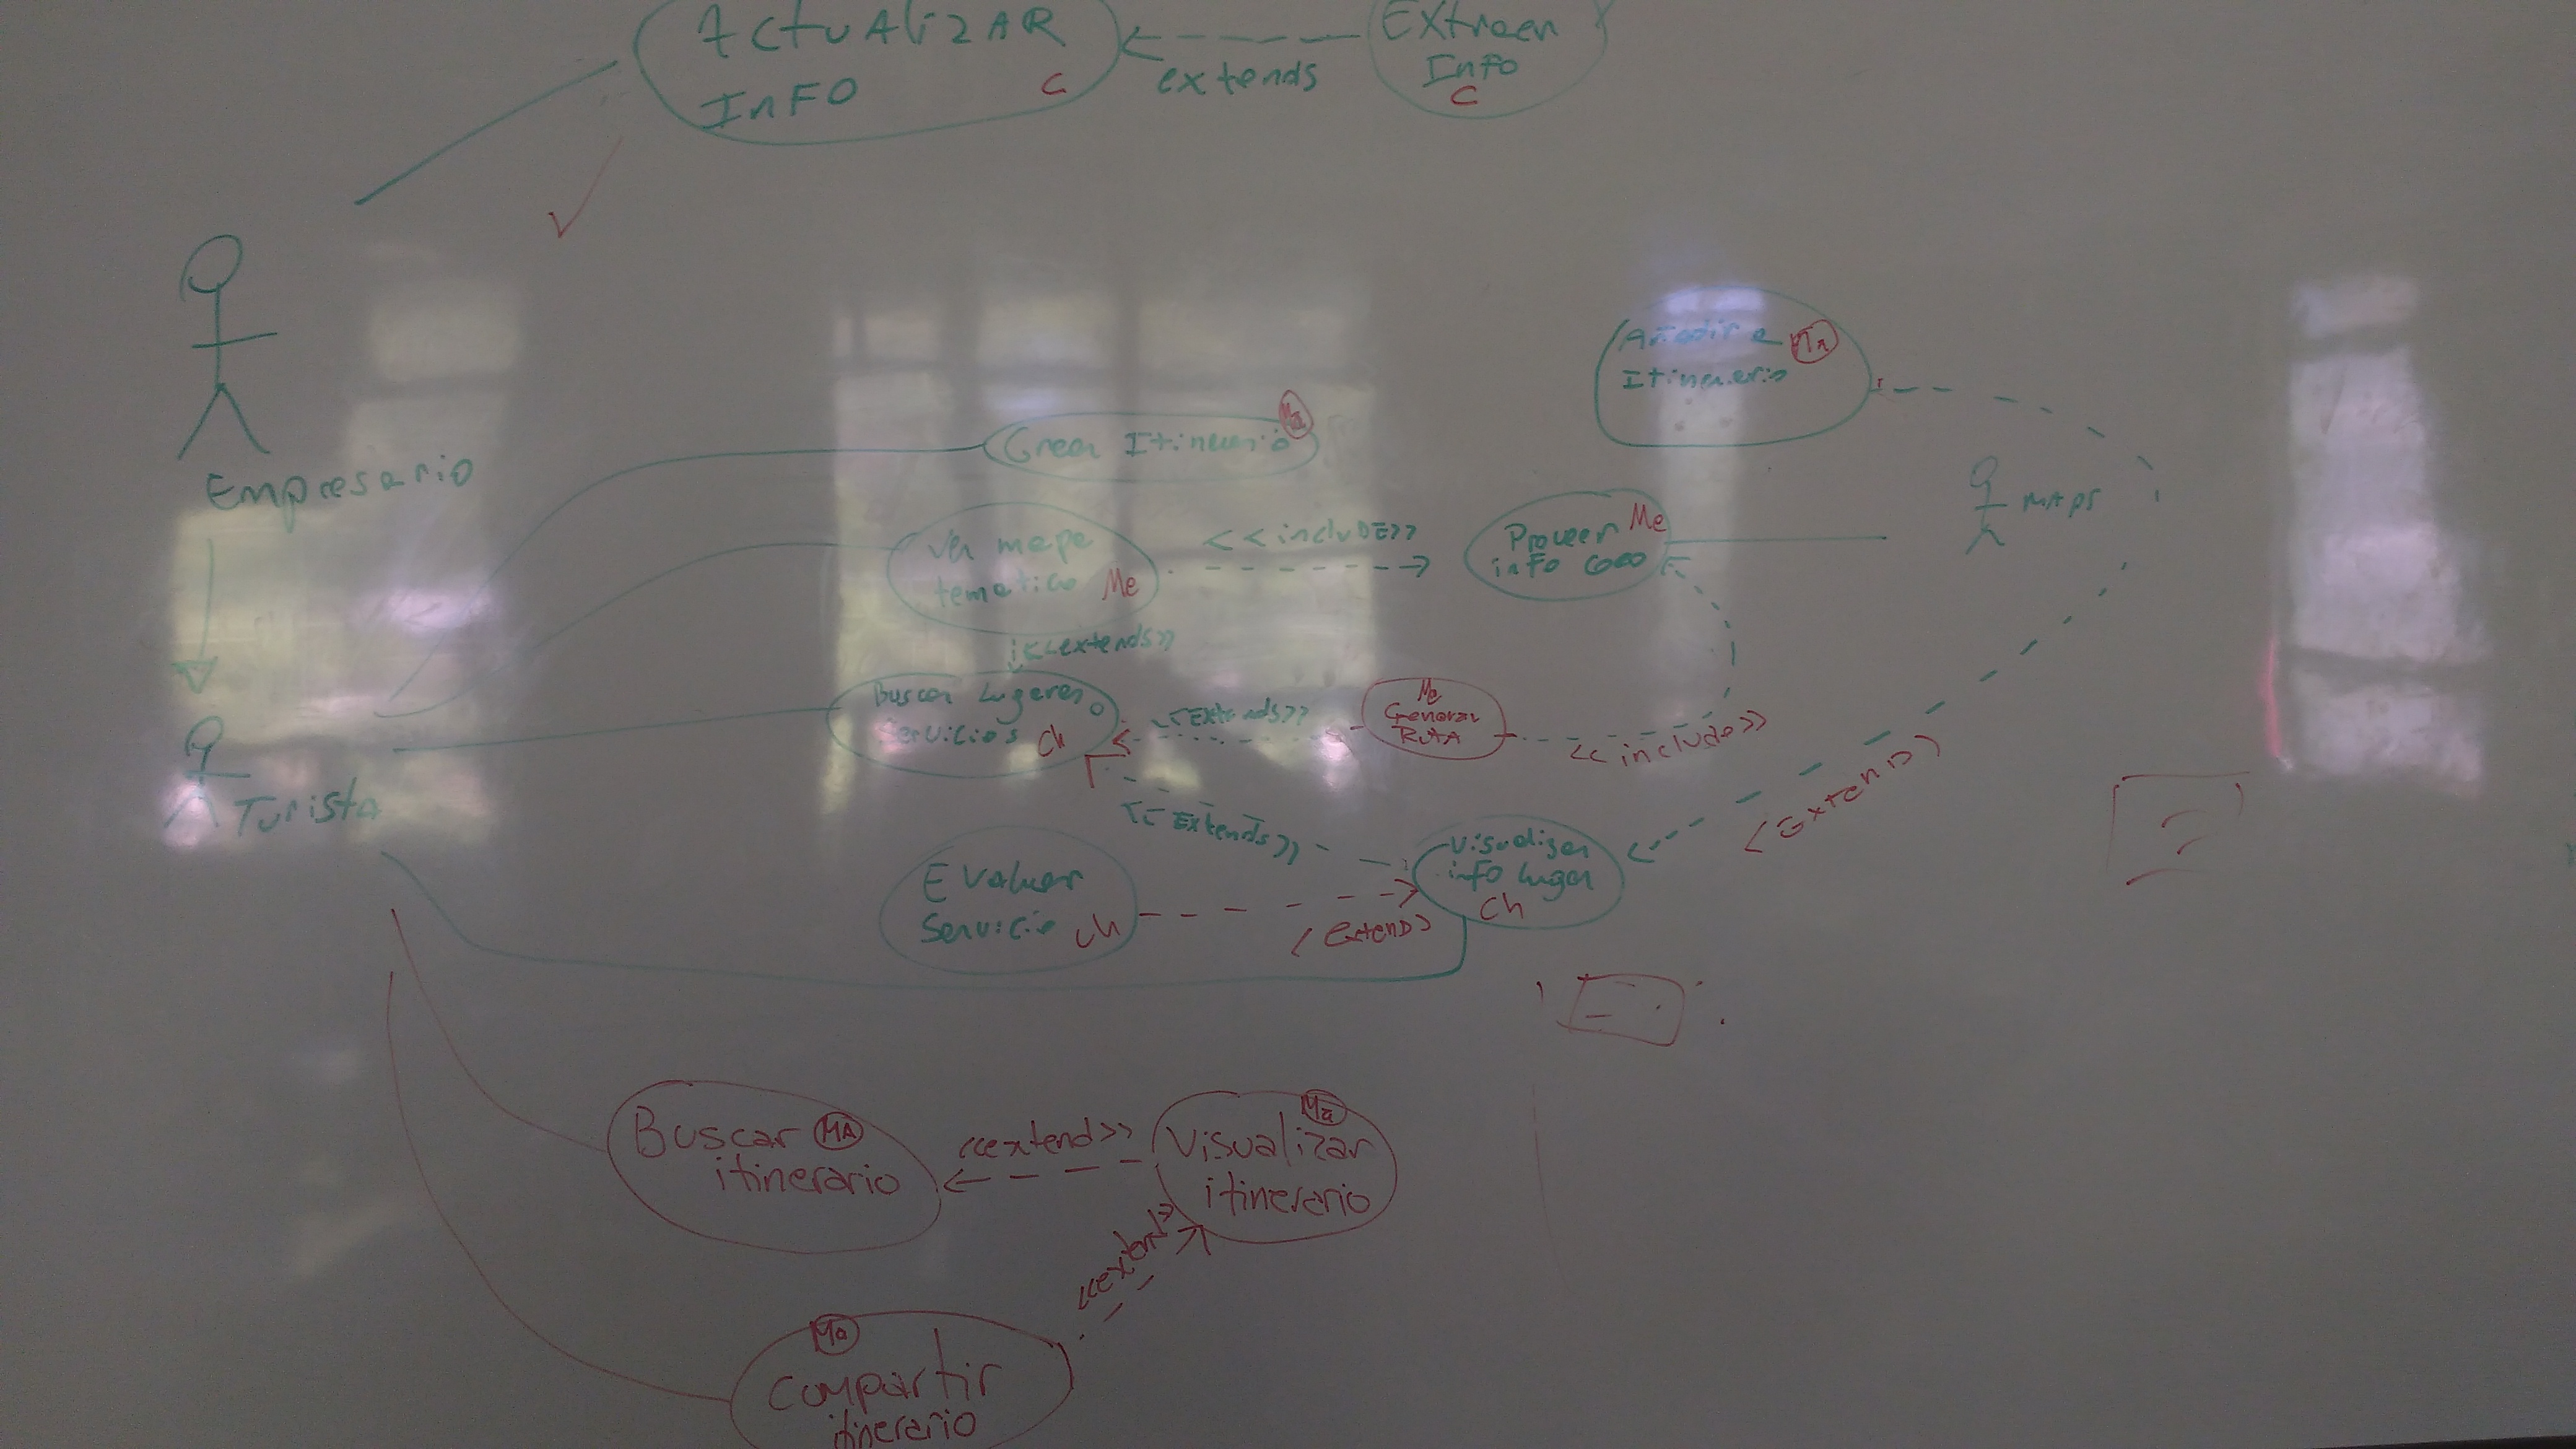 ActuAlizAR
InFO
C
extends
Extraer
Info
C
Empresario
Añadir a
Itinerario
Ma
Crear Itinerario
Ma
Ver mapa
tematico Me
<<incluDE>>
Proveer Me
info Geo
MAPS
<<extends>>
Buscar Lugares o
Servicios Ch
<<Extends>>
Me
Generar
RutA
<<include>>
Turista
<<Extends>>
<Extend>
Evaluar
Servicio ch
<Extend>
Visualizar
info lugar
Ch
Buscar MA
itinerario
<<extend>>
Ma
Visualizar
itinerario
<<extend>>
Ma
Compartir
itinerario